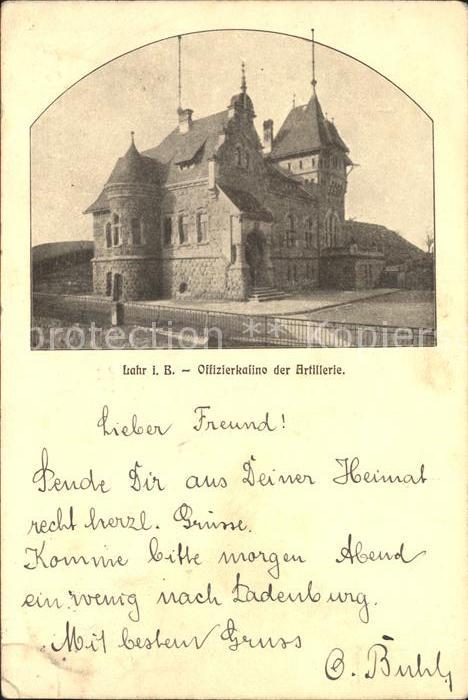 protection ** Kopier
Lahr i. B. – Offizierkasino der Artillerie.
Lieber Freund!
Sende Dir aus Deiner Heimat
recht herzl. Grüsse.
Komme bitte morgen Abend
ein wenig nach Ladenburg.
Mit bestem Gruss
O. Buhl